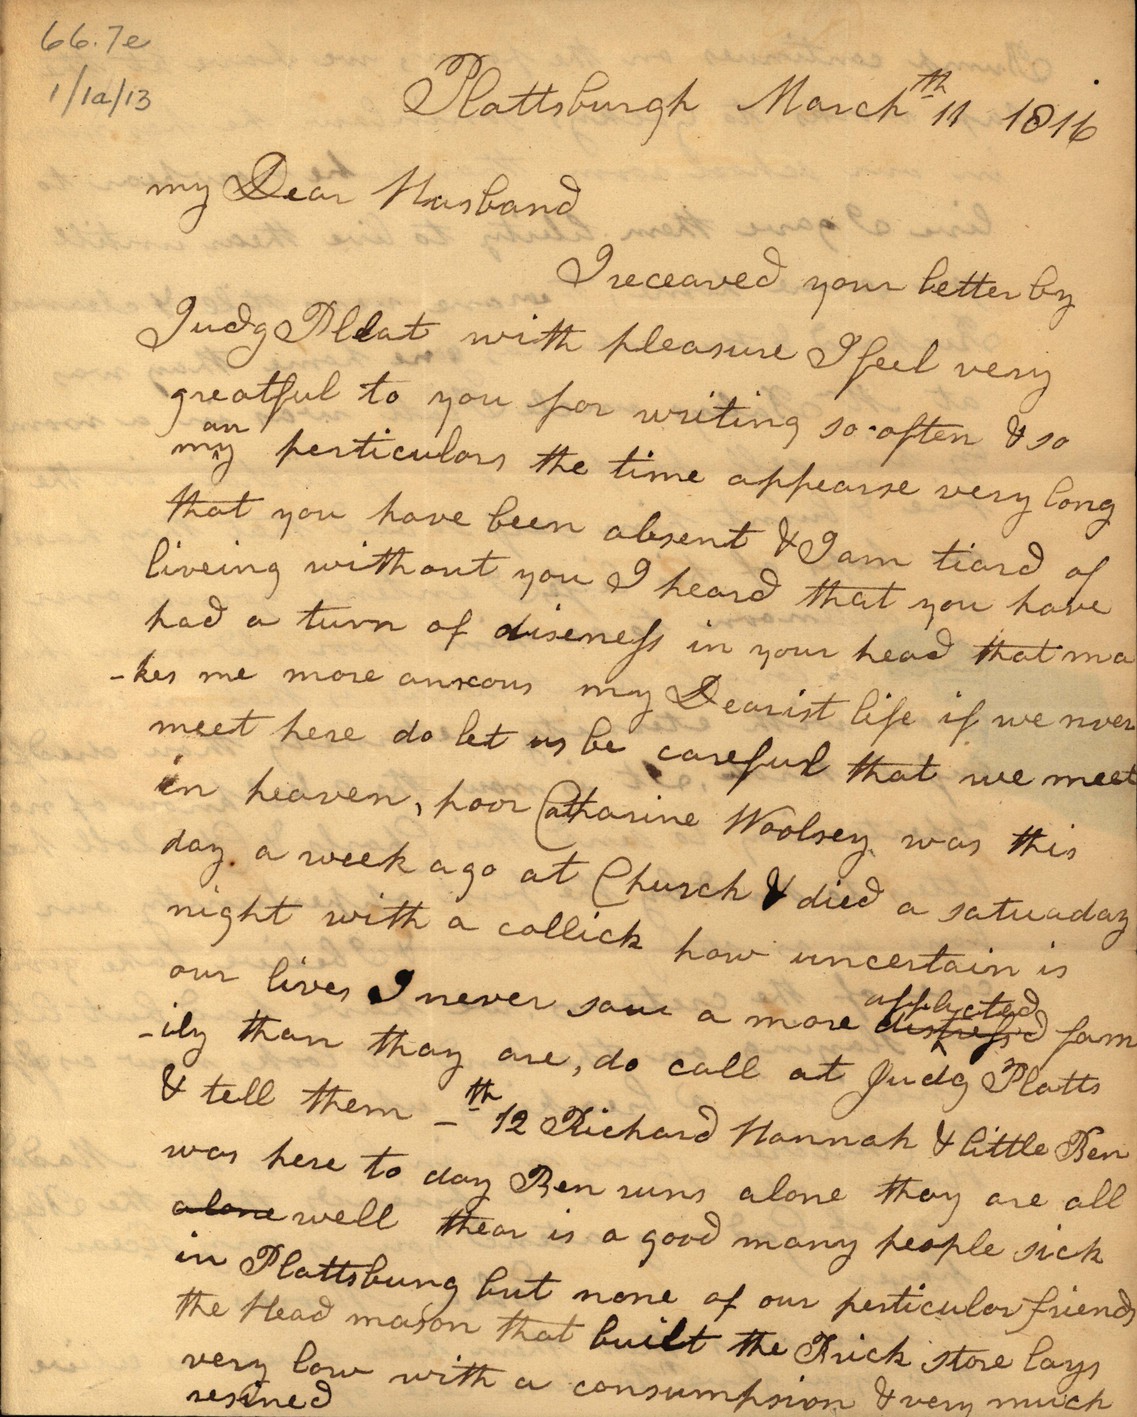 66.7e
1/1a/13
Plattsburgh March th 11 1816
my Dear Husband
I receaved your letter by
Judg Pllat with pleasure I feel very
greatful to you for writing so often & so
an
my perticulars the time appearse very long
that you have been absent & I am tiard of
liveing without you I heard that you have
had a turn of diseness in your head that ma
-kes me more anxcous my Dearist life if we nver
meet here do let us be careful that we meet
in heaven, poor Catharine Woolsey was this
day a week ago at Church & died a satuaday
night with a collick how uncertain is
our lives I never saw a more afflicted
distress'd fam
-ily than thay are, do call at Judg Platts
& tell them – th 12 Richard Hannah & little Ben
was here to day Ben runs alone thay are all
alone well thear is a good many people sick
in Plattsburg but none of our perticular friends
the Head mason that built the Brick store lays
very low with a consumpsion & very much
resined